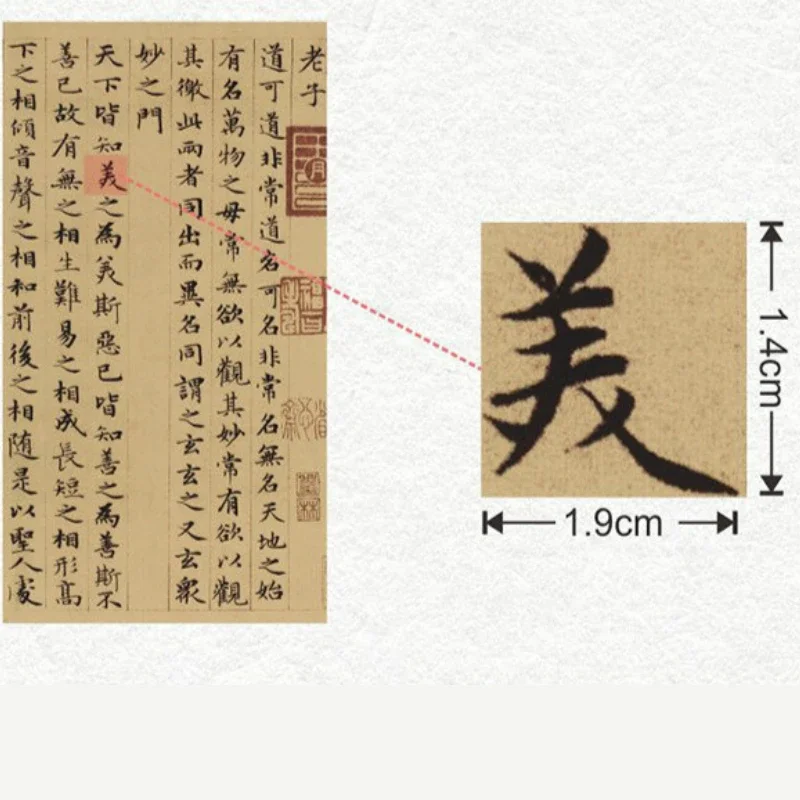 老子
道可道非常道名可名非常名無名天地之始
有名萬物之母常無欲以觀其妙常有欲以觀
其徼此兩者同出而異名同謂之玄玄之又玄眾
妙之門
天下皆知美之為美斯惡已皆知善之為善斯不
善已故有無之相生難易之相成長短之相形高
下之相傾音聲之相和前後之相隨是以聖人處
美
1.4cm
1.9cm